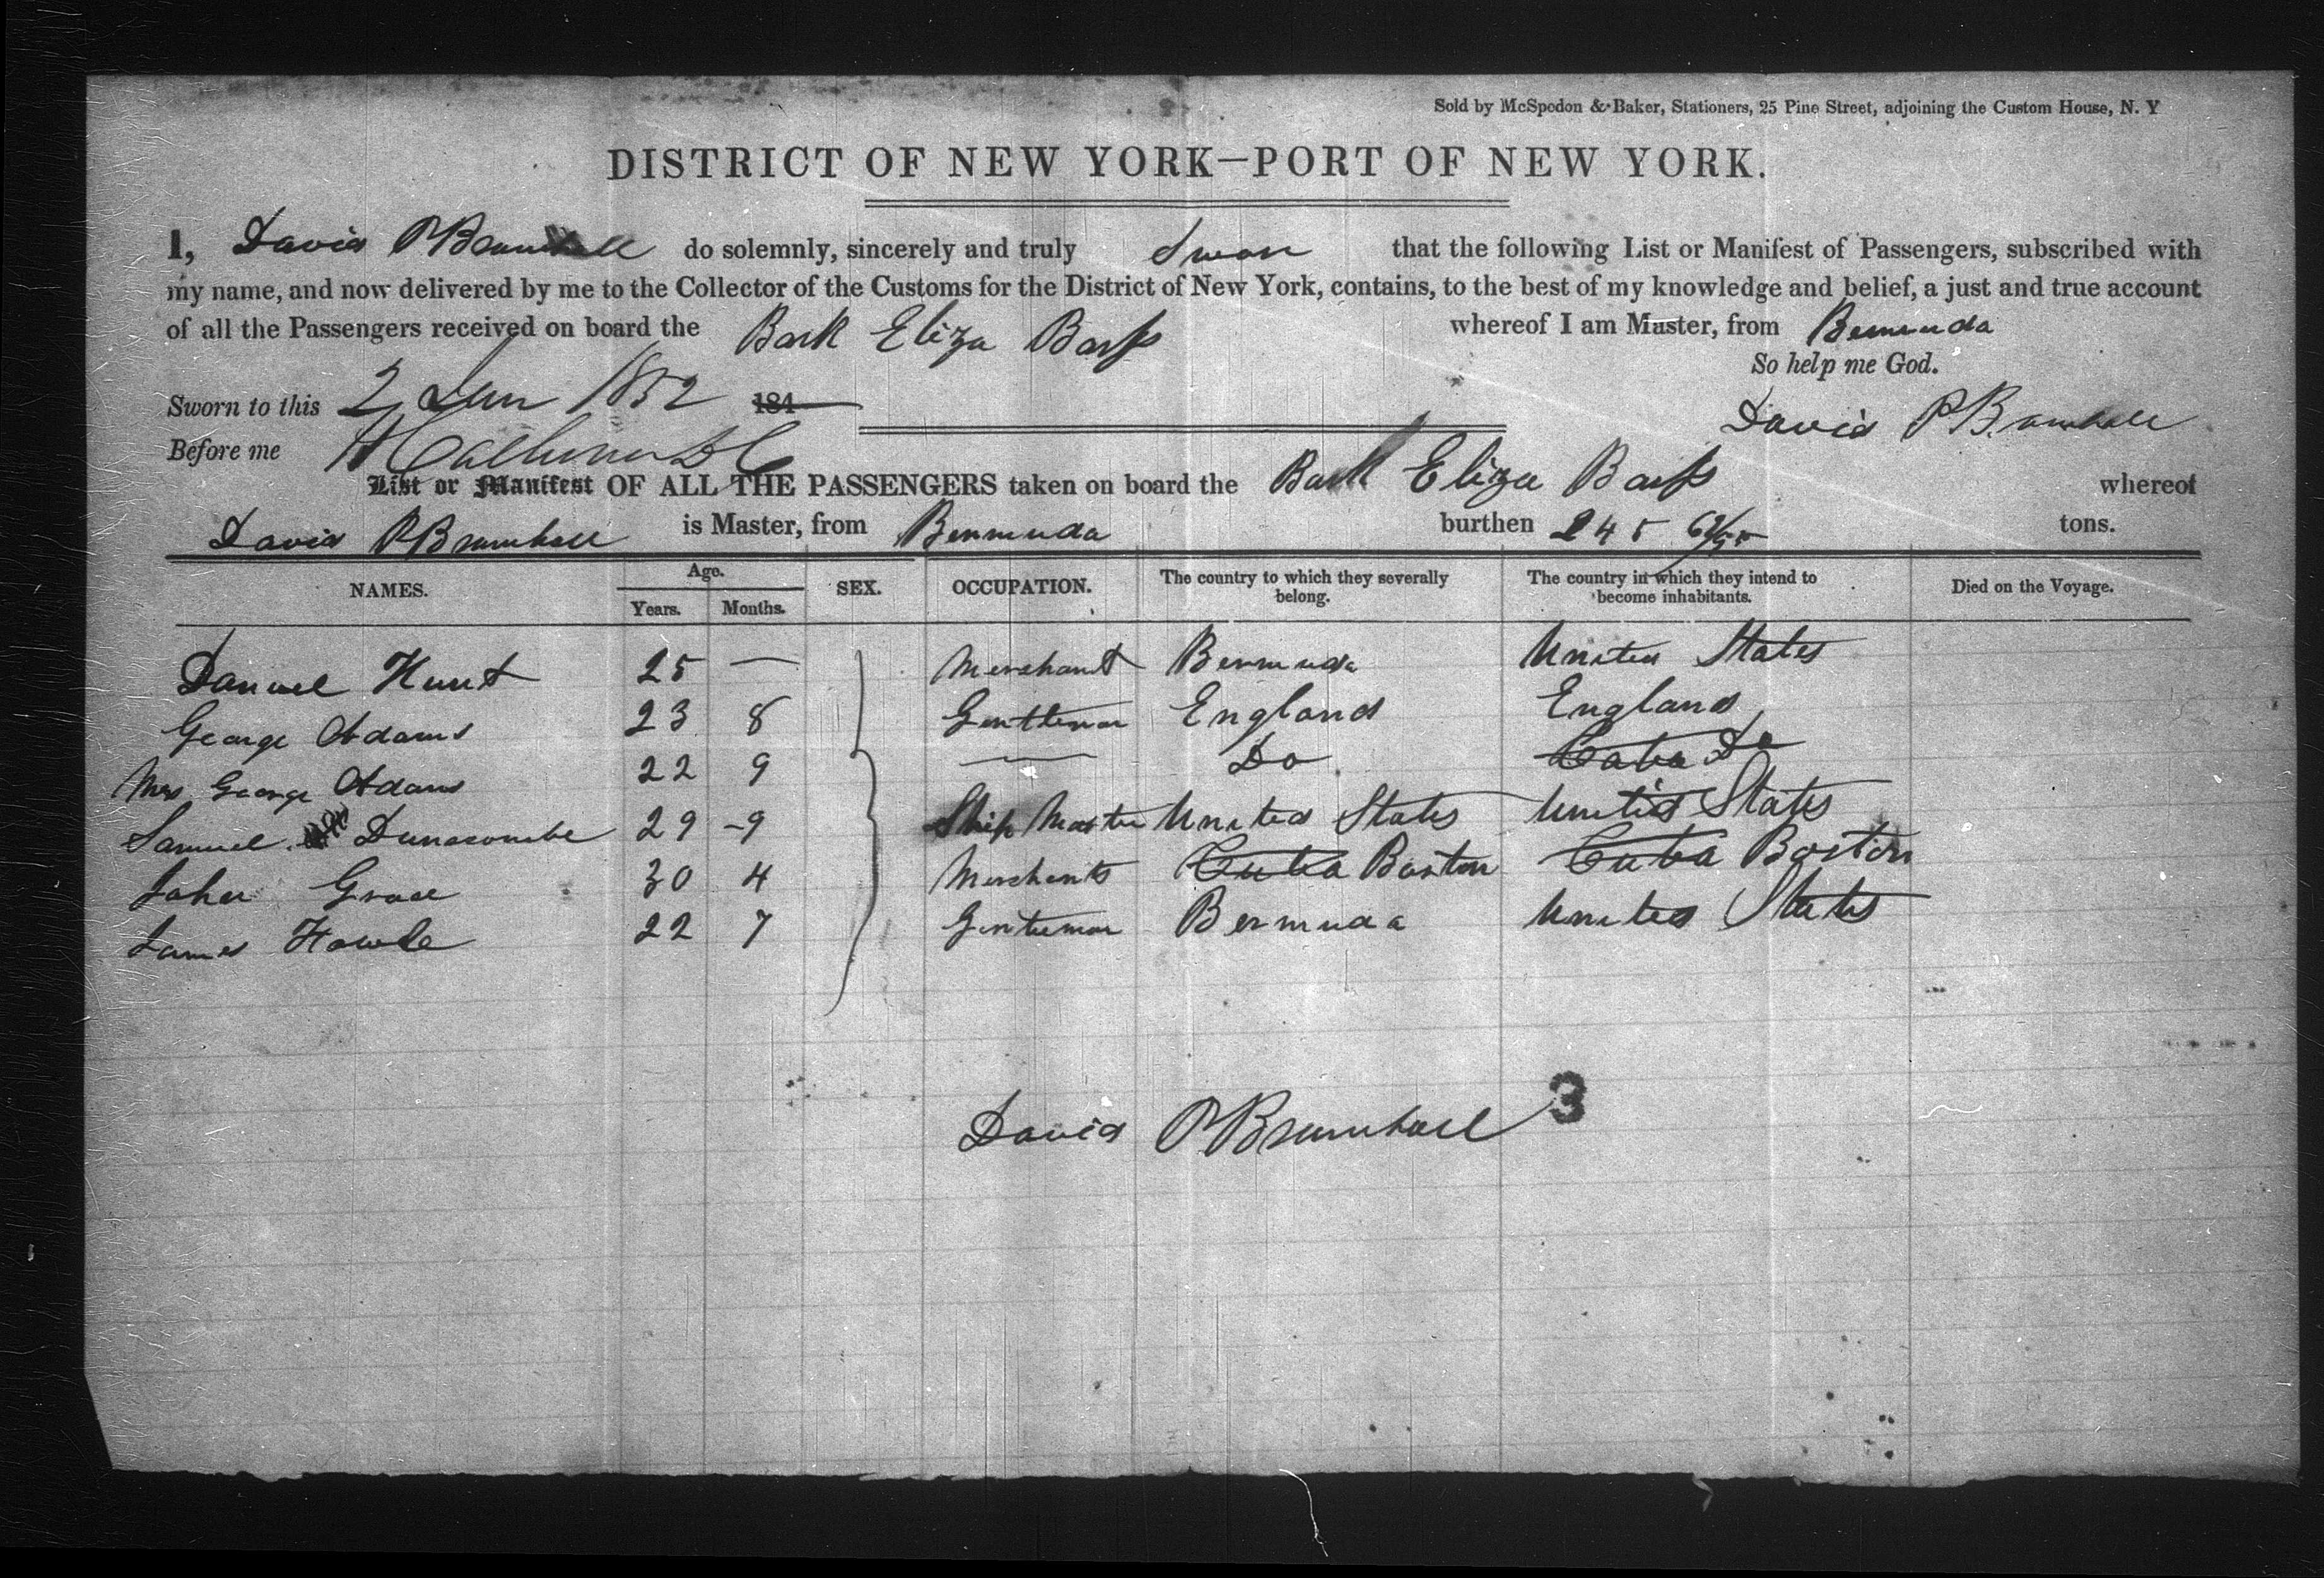 Sold by McSpedon & Baker, Stationers, 25 Pine Street, adjoining the Custom House, N. Y
DISTRICT OF NEW YORK—PORT OF NEW YORK.
I, David P Bramhall do solemnly, sincerely and truly Swear that the following List or Manifest of Passengers, subscribed with
my name, and now delivered by me to the Collector of the Customs for the District of New York, contains, to the best of my knowledge and belief, a just and true account
of all the Passengers received on board the Bark Eliza Barss whereof I am Master, from Bermuda
So help me God.
Sworn to this 2 Jan 1852 184
David P Bramhall
Before me
List or Manifest OF ALL THE PASSENGERS taken on board the Bark Eliza Barss whereof
David P Bramhall is Master, from Bermuda burthen 245 tons.
NAMES. Age. Years. Months. SEX. OCCUPATION. The country to which they severally belong. The country in which they intend to become inhabitants. Died on the Voyage.
Daniel Hunt 25 — Merchant Bermuda United States
George Adams 23 8 Gentleman England England
Mrs George Adams 22 9 — Do Cuba Do
Samuel Dunscombe 29 -9 Ship Master United States United States
John Grace 30 4 Merchants Cuba Boston Cuba Boston
James Fowle 22 7 Gentleman Bermuda United States
David P Bramhall 3